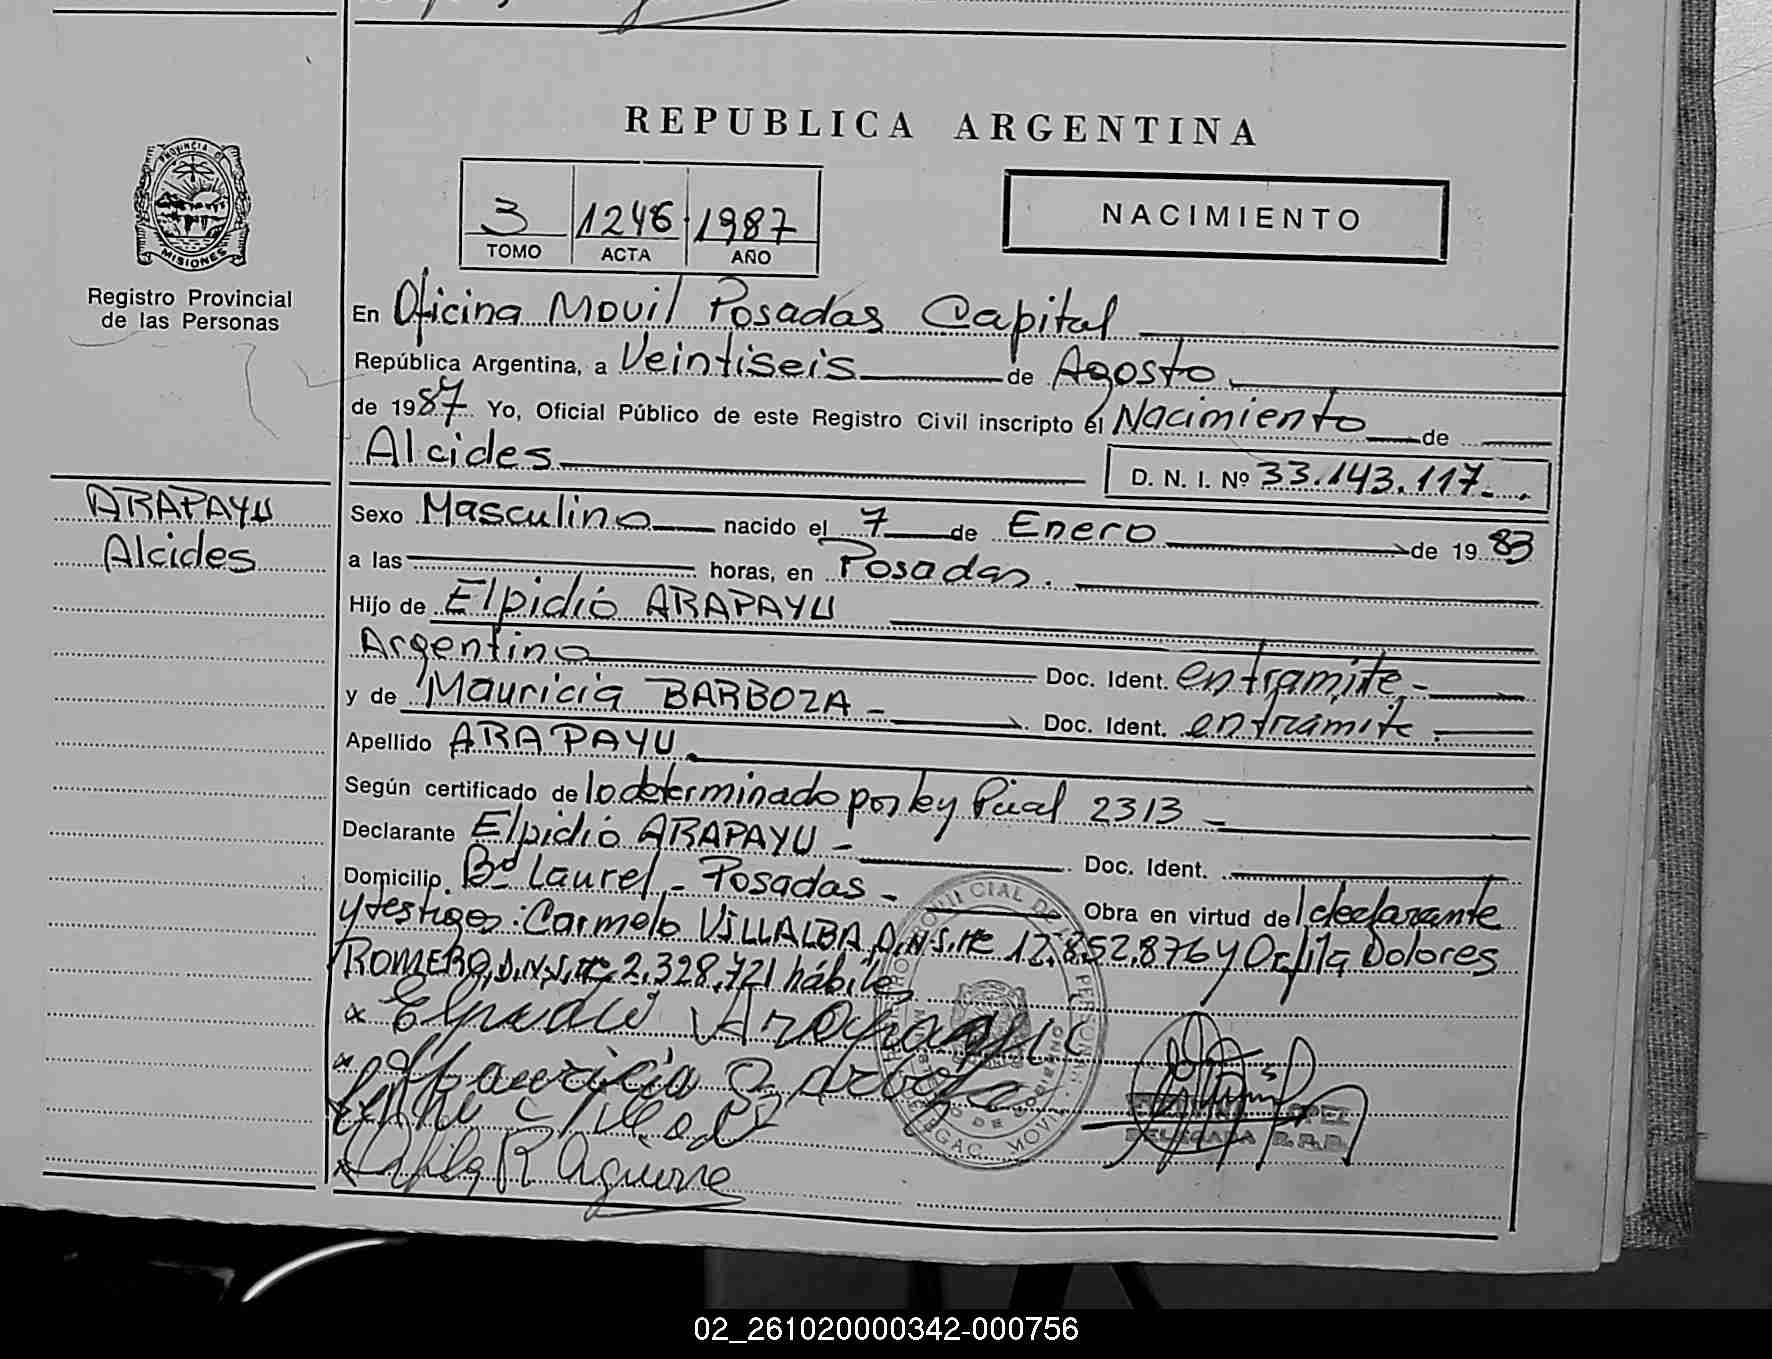 REPUBLICA ARGENTINA
PROVINCIA DE
MISIONES
Registro Provincial
de las Personas
3 1246 1987
TOMO ACTA AÑO
NACIMIENTO
En Oficina Movil Posadas Capital
República Argentina, a Veintiseis de Agosto
de 1987 Yo, Oficial Público de este Registro Civil inscripto el Nacimiento de
Alcides D. N. I. Nº 33.143.117-.
ARAPAYU
Alcides
Sexo Masculino nacido el 7 de Enero de 1983
a las horas, en Posadas.
Hijo de Elpidio ARAPAYU
Argentino Doc. Ident. entramite.-
y de Mauricia BARBOZA - Doc. Ident. entramite.
Apellido ARAPAYU.
Según certificado de lo determinado por ley Pcial 2313 -
Declarante Elpidio ARAPAYU - Doc. Ident.
Domicilio Bº Laurel - Posadas - Obra en virtud del declarante
y testigos: Carmelo VILLALBA, D.N.I. Nº 12.852.876 y Dafila Dolores
ROMERO, D.N.I. Nº 2.328.721 hábiles
Elpidio
Mauricia
R Aguirre
LOPEZ
DELEGADA
02_261020000342-000756